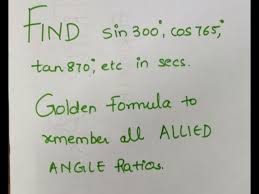 FIND sin 300°, cos 765°,
tan 870°, etc in secs.
Golden Formula to
remember all ALLIED
ANGLE Ratios.